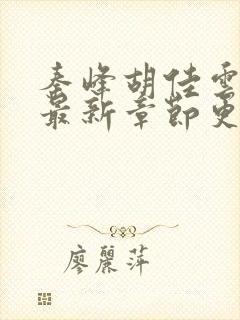 秦峰胡佳雲
最新章節更
廖麗萍